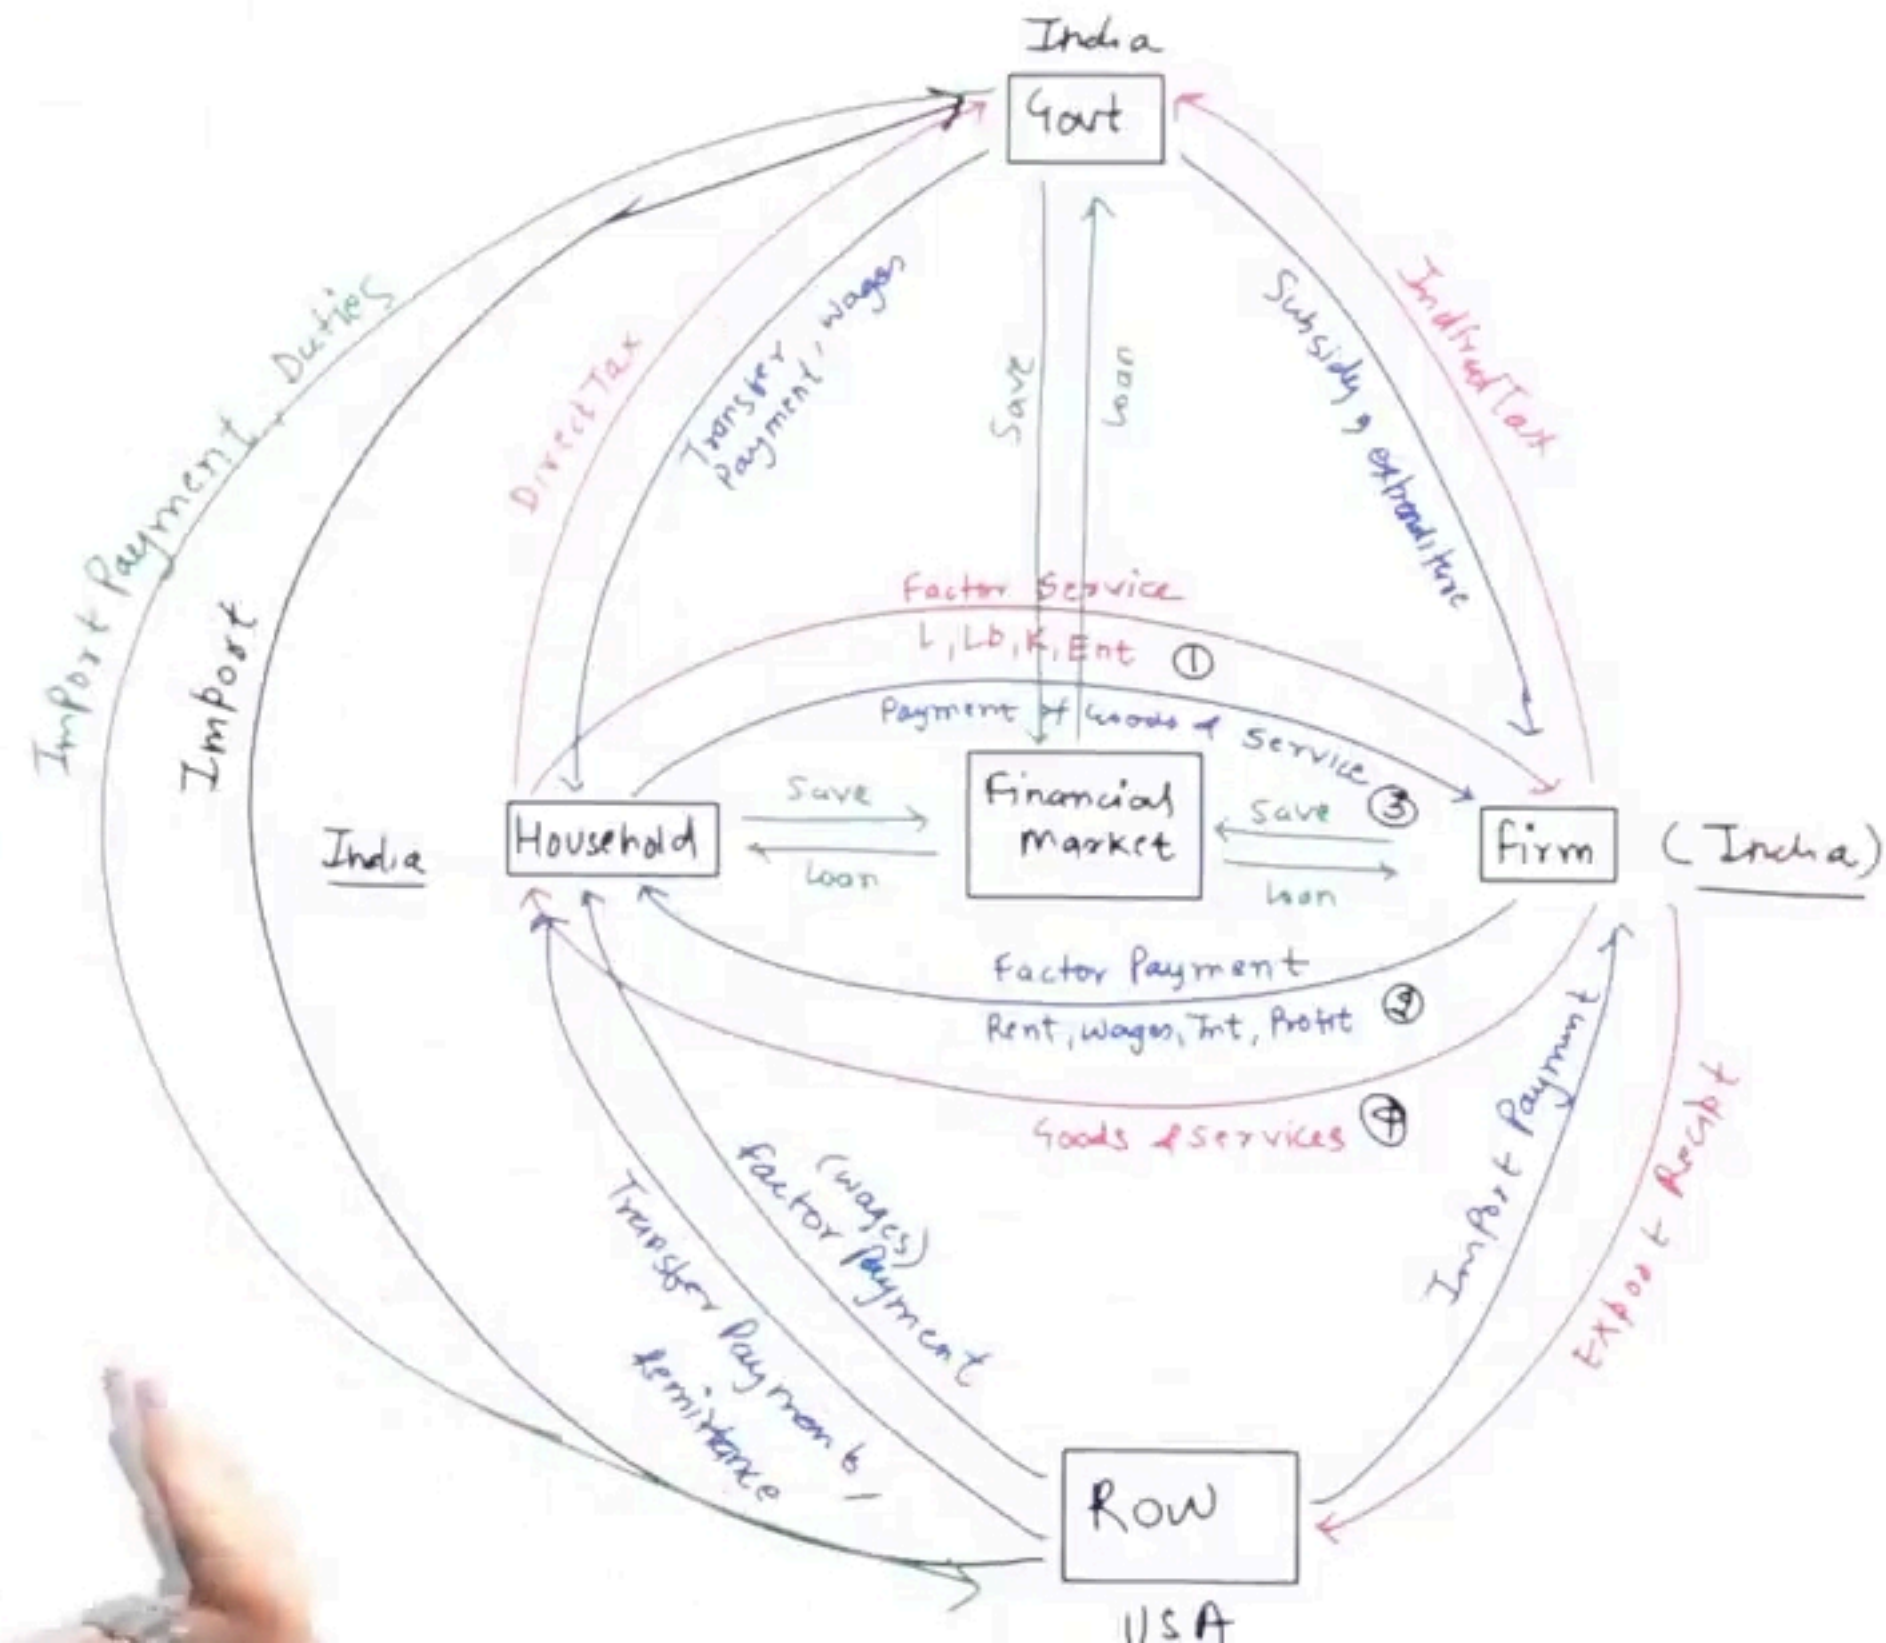 India
Govt
Import Payment, Duties
Import
Direct Tax
Transfer
Payment, wages
Save
Loan
Subsidy, expenditure
Factor Service
L, Lb, K, Ent ①
Payment of Goods & Service ③
India
Household
Save
Loan
Financial
market
Save
Loan
firm
(India)
Factor Payment
Rent, wages, Int, Profit ②
Goods & Services ④
(wages)
factor Payment
Transfer Payments,
Remittance
Import Payment
Export
ROW
USA